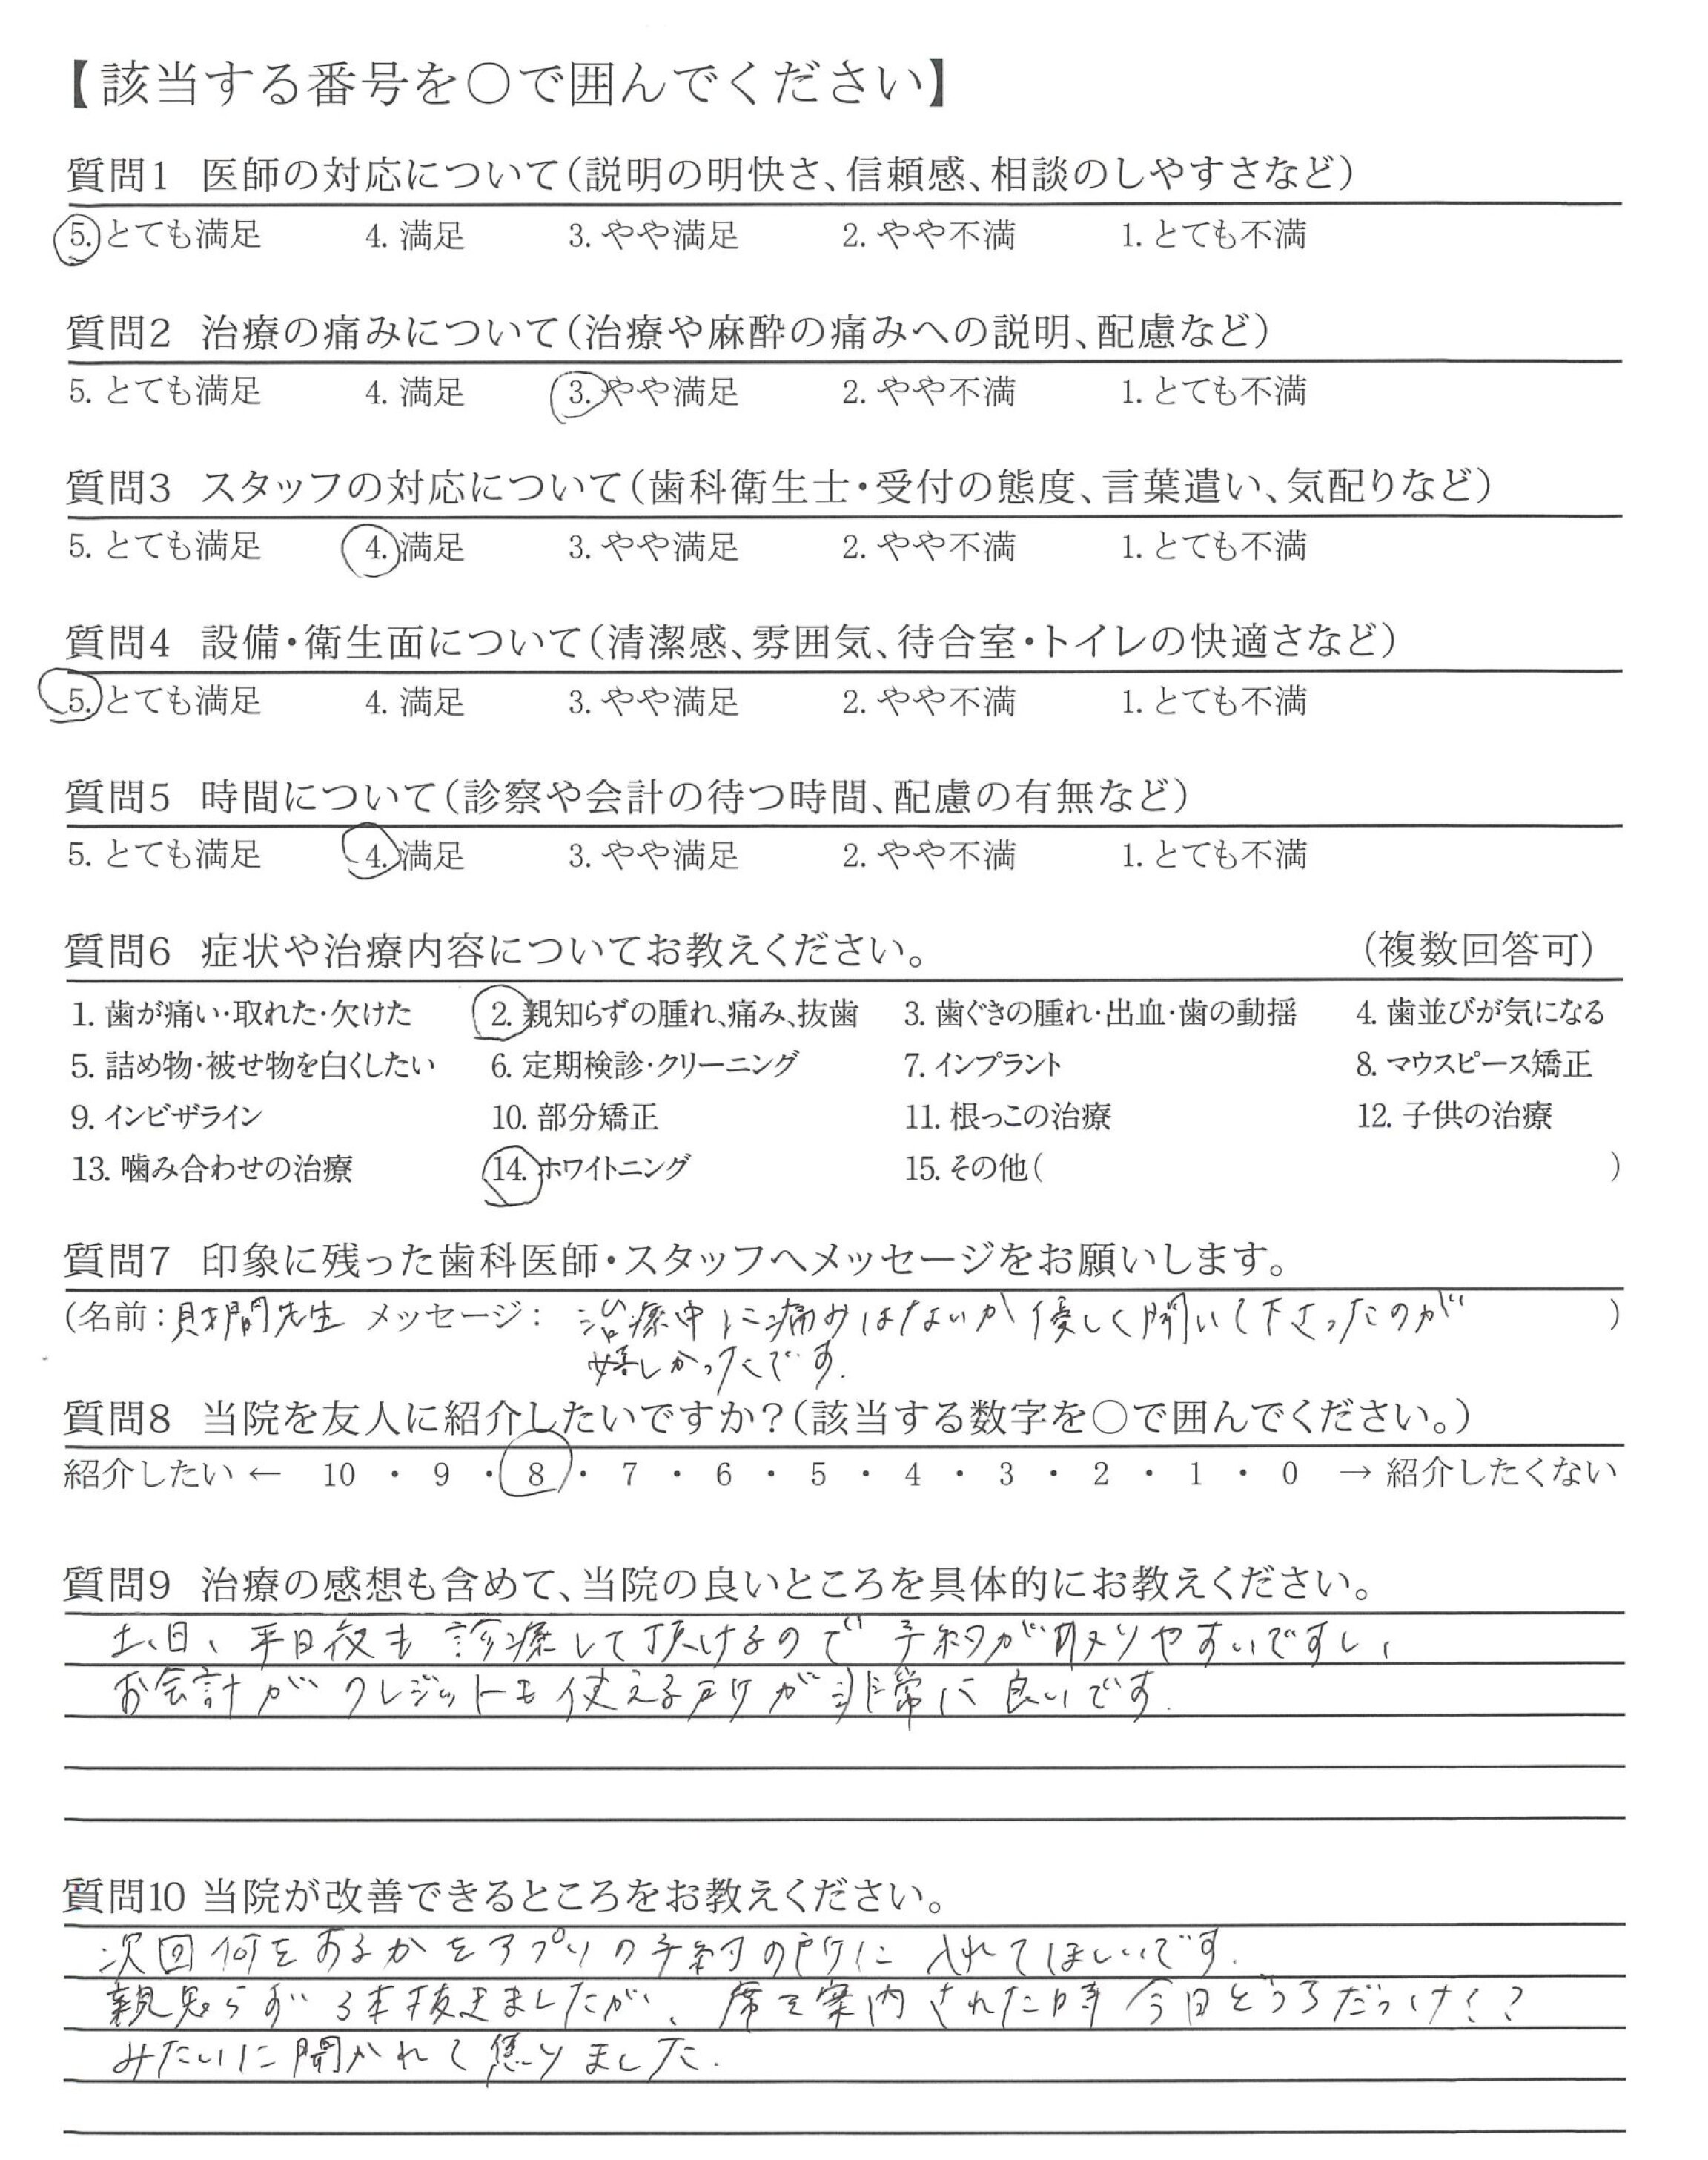 【該当する番号を○で囲んでください】
質問1 医師の対応について(説明の明快さ、信頼感、相談のしやすさなど)
5. とても満足 4. 満足 3. やや満足 2. やや不満 1. とても不満
質問2 治療の痛みについて(治療や麻酔の痛みへの説明、配慮など)
5. とても満足 4. 満足 3. やや満足 2. やや不満 1. とても不満
質問3 スタッフの対応について(歯科衛生士・受付の態度、言葉遣い、気配りなど)
5. とても満足 4. 満足 3. やや満足 2. やや不満 1. とても不満
質問4 設備・衛生面について(清潔感、雰囲気、待合室・トイレの快適さなど)
5. とても満足 4. 満足 3. やや満足 2. やや不満 1. とても不満
質問5 時間について(診察や会計の待つ時間、配慮の有無など)
5. とても満足 4. 満足 3. やや満足 2. やや不満 1. とても不満
質問6 症状や治療内容についてお教えください。 (複数回答可)
1. 歯が痛い・取れた・欠けた 2. 親知らずの腫れ、痛み、抜歯 3. 歯ぐきの腫れ・出血・歯の動揺 4. 歯並びが気になる
5. 詰め物・被せ物を白くしたい 6. 定期検診・クリーニング 7. インプラント 8. マウスピース矯正
9. インビザライン 10. 部分矯正 11. 根っこの治療 12. 子供の治療
13. 噛み合わせの治療 14. ホワイトニング 15. その他( )
質問7 印象に残った歯科医師・スタッフへメッセージをお願いします。
(名前：財間先生 メッセージ： 治療中に痛みはないか優しく聞いて下さったのが )
嬉しかったです.
質問8 当院を友人に紹介したいですか？(該当する数字を○で囲んでください。)
紹介したい ← 10 ・ 9 ・ 8 ・ 7 ・ 6 ・ 5 ・ 4 ・ 3 ・ 2 ・ 1 ・ 0 → 紹介したくない
質問9 治療の感想も含めて、当院の良いところを具体的にお教えください。
土、日、平日夜も診療して頂けるので予約が取りやすいですし、
お会計がクレジットも使える所が非常に良いです.
質問10 当院が改善できるところをお教えください。
次回何をするかをアプリの予約の所に入れてほしいです.
親知らず3本抜きましたが、席で案内された時今日どうろだっけ！？
みたいに聞かれて焦りました.